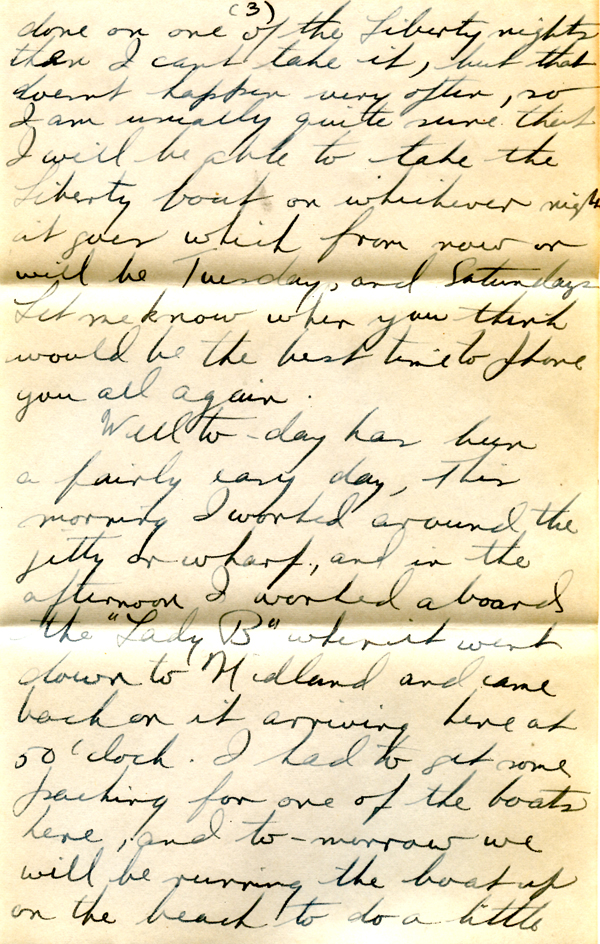 (3)
done on one of the Liberty nights
then I cant take it, but that
doesnt happen very often, so
I am usually quite sure that
I will be able to take the
Liberty boat on whichever night
it goes which from now on
will be Tuesday, and Saturdays
Let me know when you think
would be the best time to phone
you all again.
Well to-day has been
a fairly easy day, This
morning I worked around the
jetty or wharf, and in the
afternoon I worked aboard
the "Lady B" when it went
down to Midland and came
back on it arriving here at
5 O'clock. I had to get some
packing for one of the boats
here, and to-morrow we
will be running the boat up
on the beach to do a little